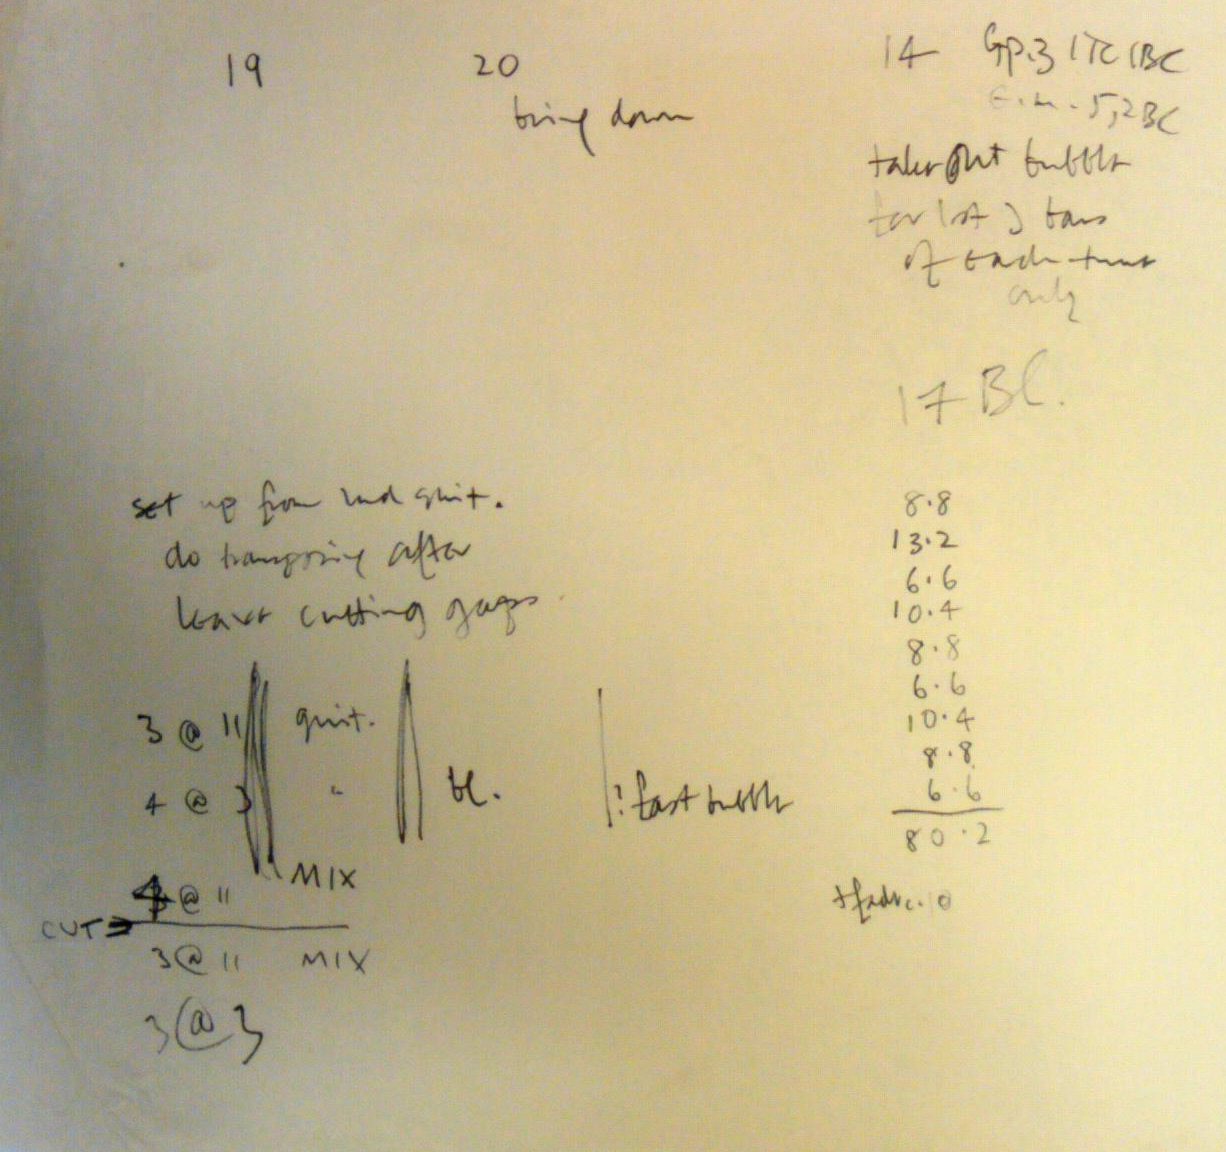 19
20
bring down
14 Gp.3 1TC 1BC
5,2BC
take out bubble
for 1st 3 bars
of each time
only
17 BC.
set up from 2nd guit.
do transposing after
leave cutting gaps
3 @ 11 guit.
4 @ 3 " bl. ? fast bubble
MIX
4 @ 11
CUT
3 @ 11 MIX
3 @ 3
8.8
13.2
6.6
10.4
8.8
6.6
10.4
8.8
6.6
80.2
10